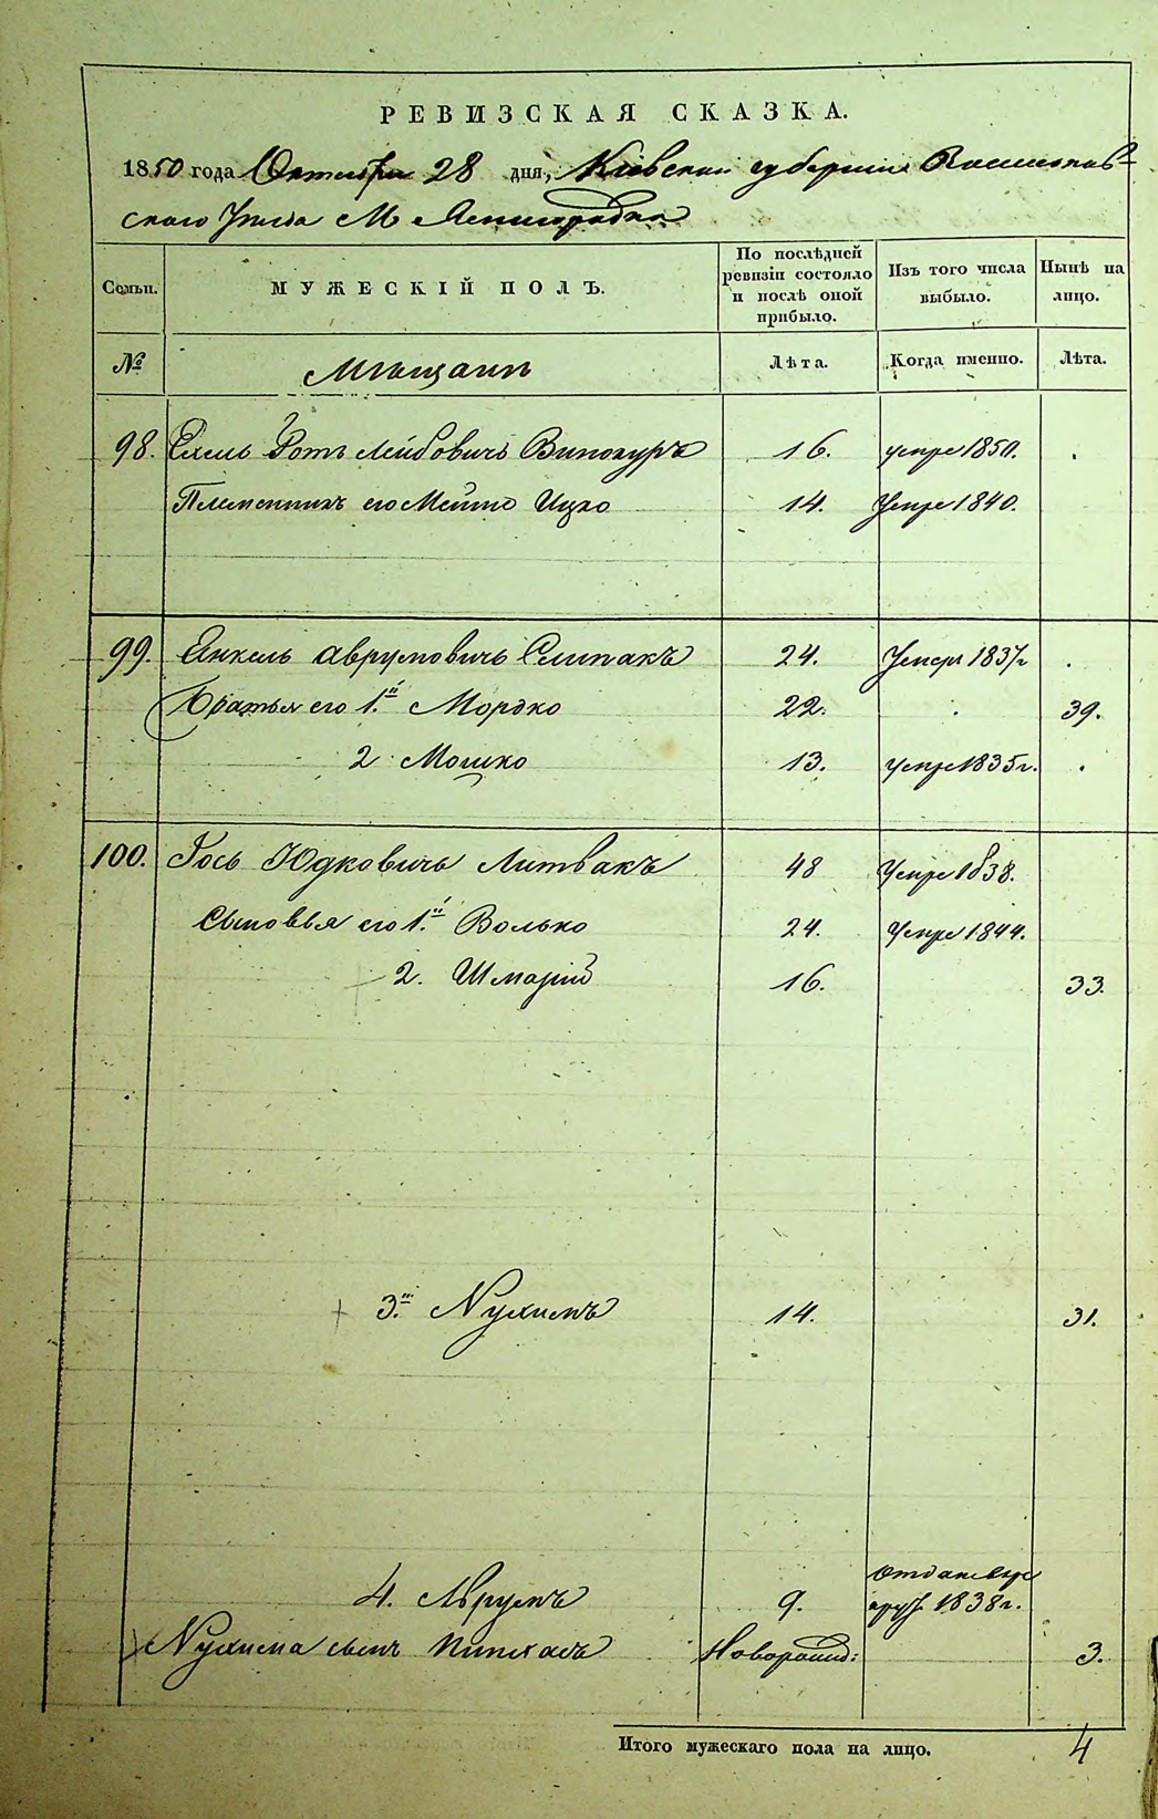 РЕВИЗСКАЯ СКАЗКА.
1850 года Октября 28 дня, Кіевской губерніи Васильков-
скаго Уѣзда М
Семьи. МУЖЕСКІЙ ПОЛЪ. По послѣдней ревизіи состояло и послѣ оной прибыло. Изъ того числа выбыло. Нынѣ на лицо.
№ Мѣщанъ Лѣта. Когда именно. Лѣта.
98. Лейбовичъ Винокуръ 16. умре 1850.
Племенникъ его Ицко 14. Умре 1840.
99. Янкель Аврумовичъ Слипакъ 24. Умеръ 1837г
Братья его 1.й Мордко 22. 39.
2 Мошко 13. умре 1835г.
100. Іось Юдковичъ Литвакъ 48 Умре 1838.
Сыновья его 1.й Волько 24. Умре 1844.
2. Шмарій 16. 33.
3. Нухимъ 14. 31.
4. Аврумъ 9. отданъ въ рекруты 1838г.
Нухима сынъ Пинхасъ Новорожд: 3.
Итого мужескаго пола на лицо. 4